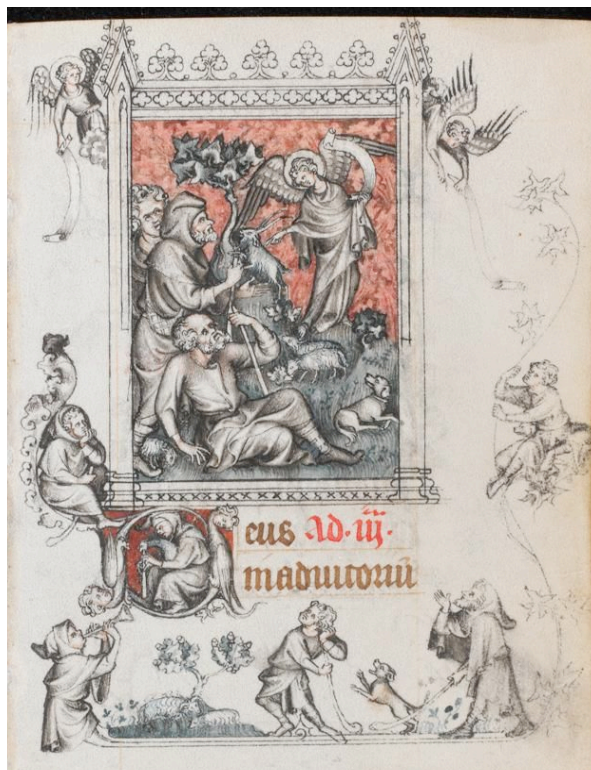 eus Ad·iij·
in adiutoriū